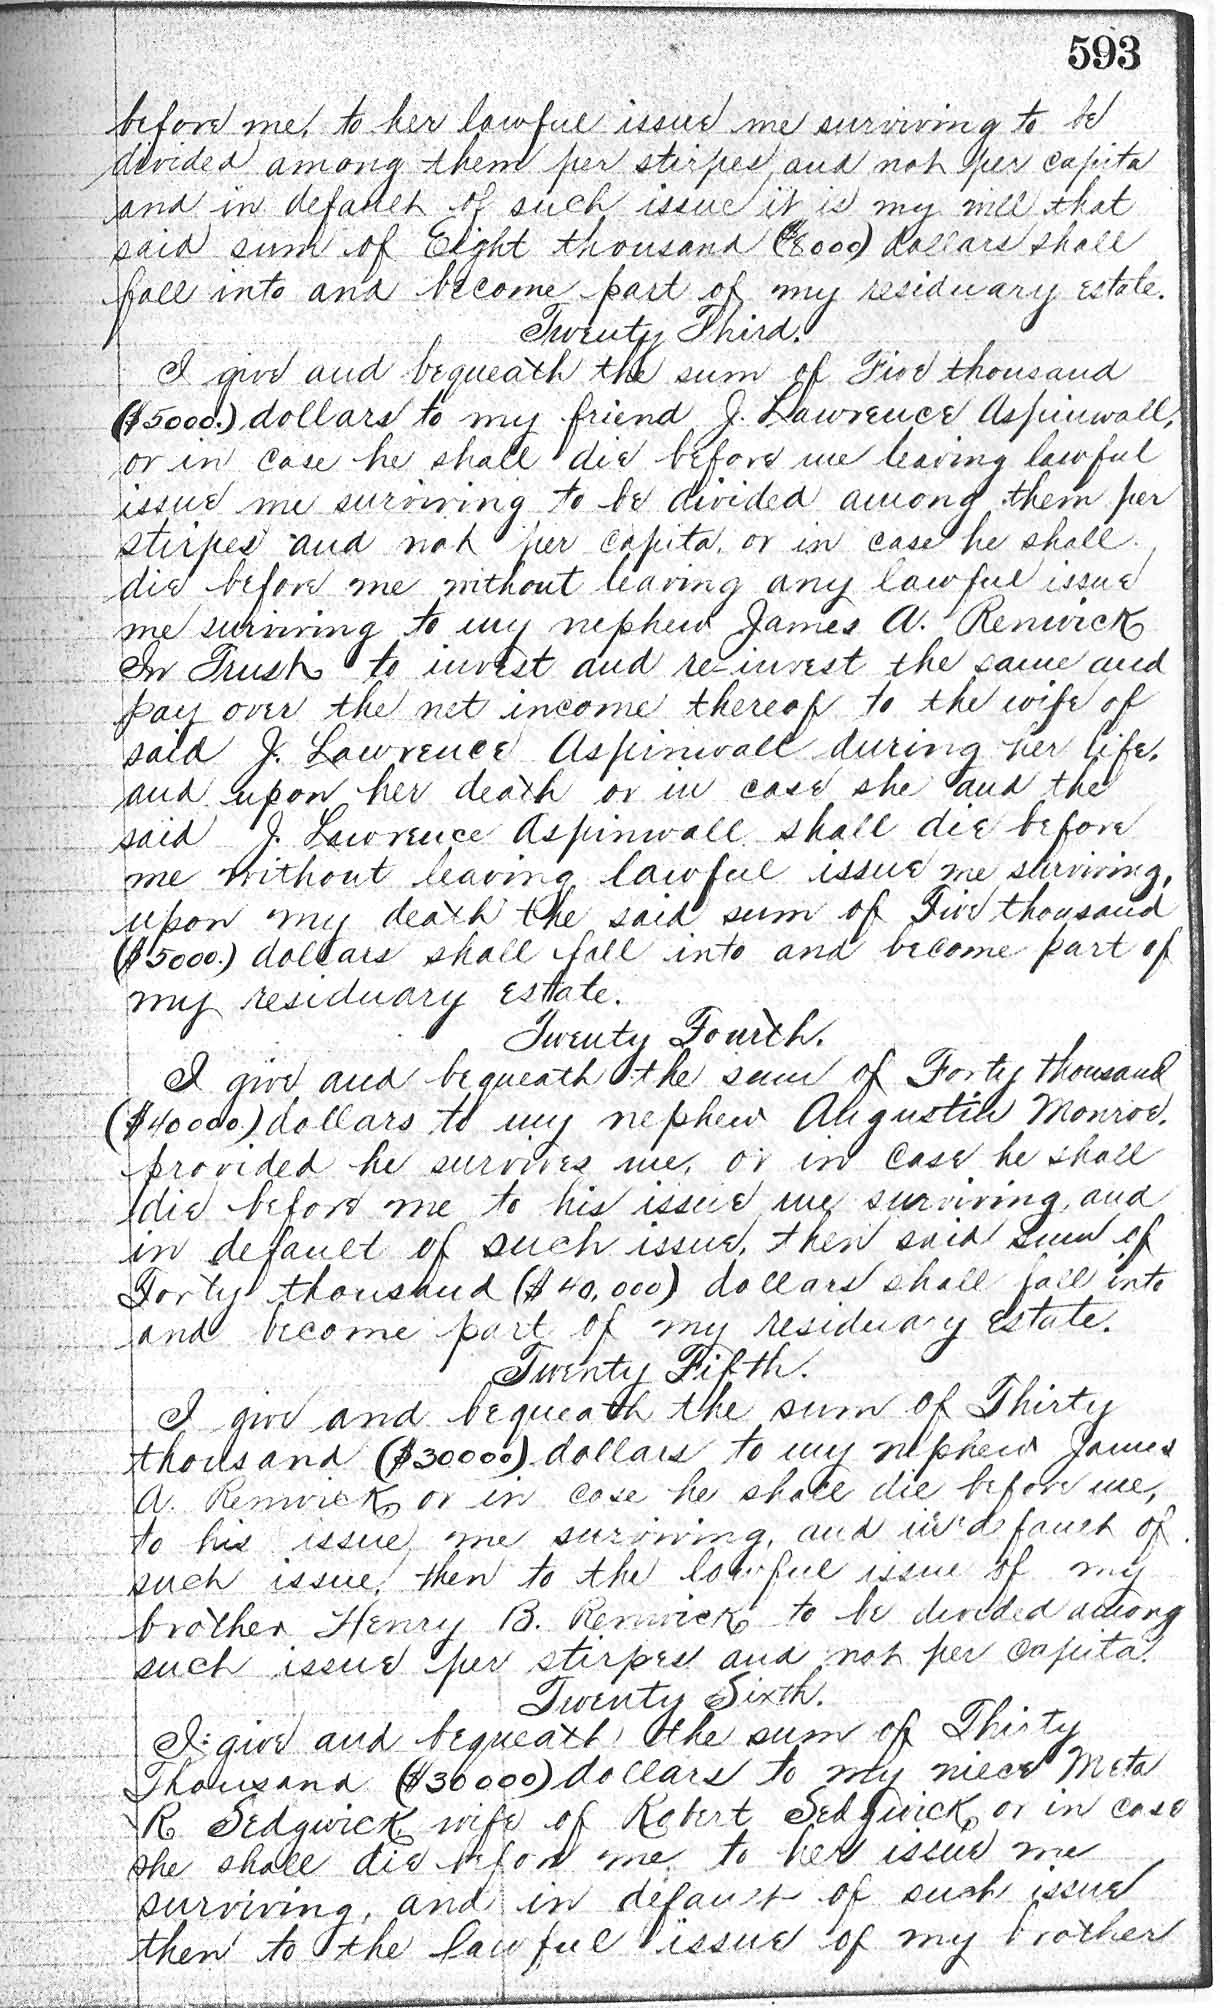 593
before me, to her lawful issue me surviving to be
divided among them per stirpes and not per capita
and in default of such issue it is my will that
said sum of Eight thousand ($8000) dollars shall
fall into and become part of my residuary estate.
Twenty Third.
I give and bequeath the sum of Five thousand
($5000.) dollars to my friend J. Lawrence Aspinwall,
or in case he shall die before me leaving lawful
issue me surviving to be divided among them per
stirpes and not per capita, or in case he shall
die before me without leaving any lawful issue
me surviving to my nephew James A. Renwick
In Trust to invest and re-invest the same and
pay over the net income thereof to the wife of
said J. Lawrence Aspinwall during her life,
and upon her death or in case she and the
said J. Lawrence Aspinwall shall die before
me without leaving lawful issue me surviving,
upon my death the said sum of Five thousand
($5000.) dollars shall fall into and become part of
my residuary estate.
Twenty Fourth.
I give and bequeath the sum of Forty thousand
($40000.) dollars to my nephew Augustin Monroe,
provided he survives me, or in case he shall
die before me to his issue me surviving, and
in default of such issue, then said sum of
Forty thousand ($40,000) dollars shall fall into
and become part of my residuary estate.
Twenty Fifth.
I give and bequeath the sum of Thirty
thousand ($30000) dollars to my nephew James
A. Renwick or in case he shall die before me,
to his issue me surviving, and in default of
such issue, then to the lawful issue of my
brother Henry B. Renwick to be divided among
such issue per stirpes and not per capita.
Twenty Sixth.
I give and bequeath the sum of Thirty
Thousand ($30000) dollars to my niece Meta
R Sedgwick wife of Robert Sedgwick, or in case
she shall die before me to her issue me
surviving, and in default of such issue
then to the lawful issue of my brother